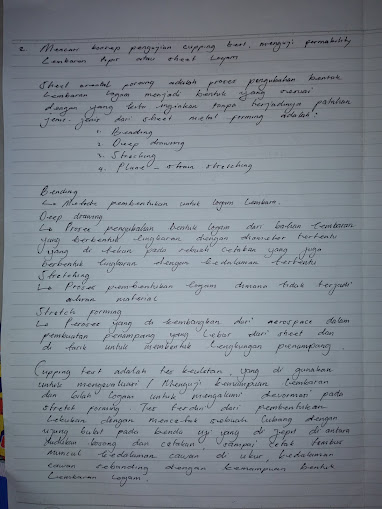 2. Mencari konsep pengujian cupping test, menguji formability
Lembaran tipis atau sheet logam
Sheet metal forming adalah proses pengubahan bentuk
Lembaran logam menjadi bentuk yang sesuai
dengan yang kita inginkan tanpa terjadinya patahan
jenis-jenis dari sheet metal forming adalah:
1. Bending
2. Deep drawing
3. Streching
4. Plane-strain stretching
Bending
↳ Metode pembentukan untuk logam lembaran.
Deep drawing
↳ Proses pengubahan bentuk logam dari bahan lembaran
yang berbentuk lingkaran dengan diameter tertentu
yang di tekan pada sebuah cetakan yang juga
berbentuk lingkaran dengan kedalaman tertentu
Stretching
↳ Proses pembentukan logam dimana tidak terjadi
aliran material
Stretch forming
↳ Proses yang di kembangkan dari aerospace dalam
pembuatan penampang yang lebar dari sheet dan
di tarik untuk membentuk lengkungan penampang
Cupping test adalah tes keuletan, yang di gunakan
untuk mengevaluasi / Menguji kemampuan lembaran
dan logam untuk mengalami deformasi pada
stretch forming. Tes terdiri dari pembentukan
Lekukan dengan mencetak sebuah lubang dengan
ujung bulat pada benda uji yang di jepit di antara
dudukan dan cetakan, sampai retak tembus
muncul kedalaman cawan di ukur, kedalaman
cawan sebanding dengan kemampuan bentuk
Lembaran logam.